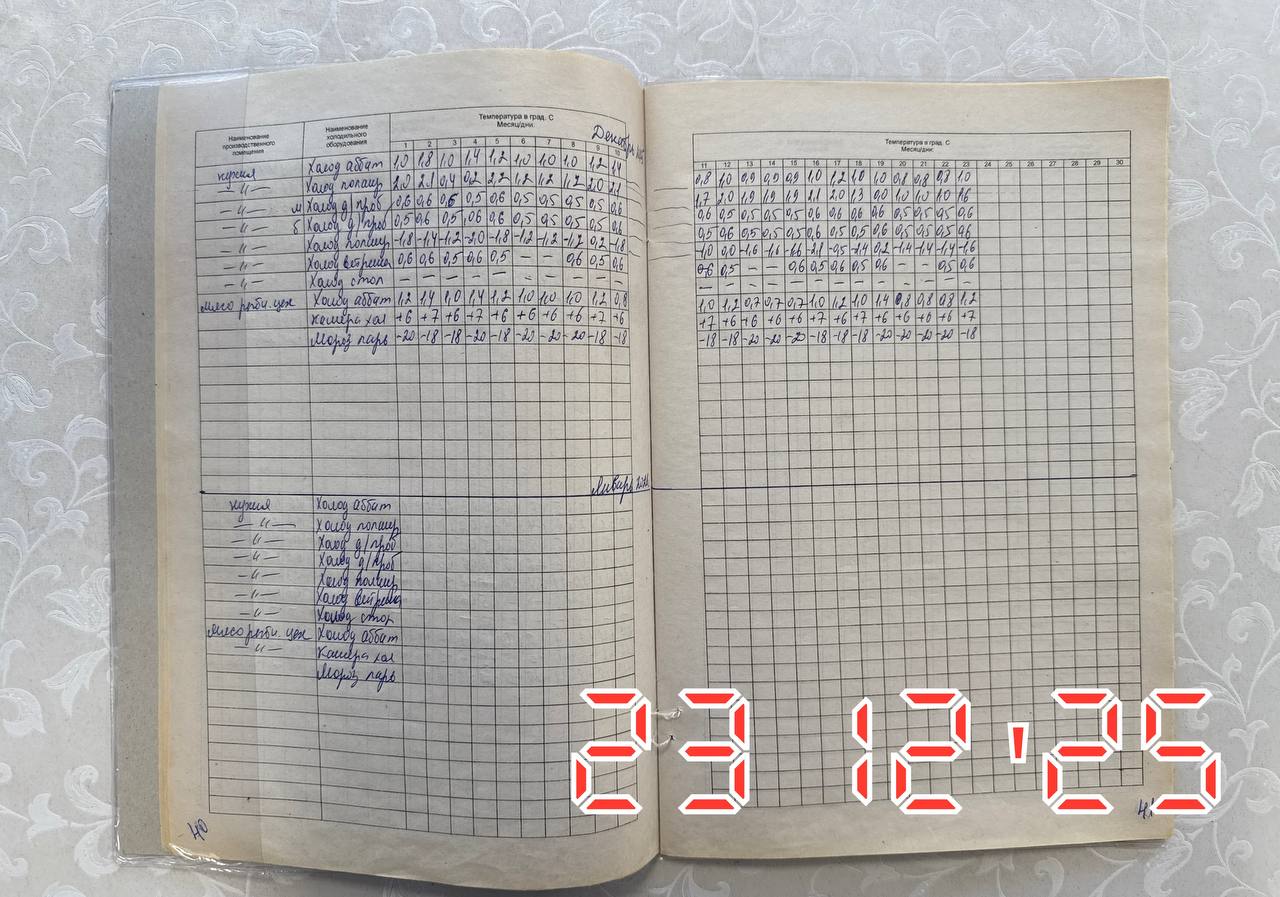 Наименование производственного помещения Наименование холодильного оборудования Температура в град. С Месяц/дни: Декабрь
1 2 3 4 5 6 7 8 9 10
кухня Холод аббат 1,0 1,8 1,0 1,4 1,2 1,0 1,0 1,0 1,2 1,4
—"— Холод 2,0 2,1 0,4 0,2 2,2 1,2 1,2 1,2 2,0 2,1
—"— м Холод д/проб 0,6 0,6 0,6 0,5 0,6 0,5 0,5 0,5 0,5 0,6
—"— б Холод д/проб 0,5 0,6 0,5 0,6 0,6 0,5 0,5 0,5 0,5 0,6
—"— Холод -1,8 -1,4 -1,2 -2,0 -1,8 -1,2 -1,2 -1,2 0,2 -1,8
—"— Холод витрина 0,6 0,6 0,5 0,6 0,5 — — 0,6 0,5 0,6
—"— Холод стол — — — — — — — — — —
мясо рыбн. цех Холод аббат 1,2 1,4 1,0 1,4 1,2 1,0 1,0 1,0 1,2 0,8
Камера хол +6 +7 +6 +7 +6 +6 +6 +6 +7 +6
Мороз ларь -20 -18 -18 -20 -18 -20 -20 -20 -18 -18
Январь
кухня Холод аббат
—"— Холод
—"— Холод д/проб
—"— Холод д/проб
—"— Холод
—"— Холод витрина
—"— Холод стол
мясо рыбн. цех Холод аббат
—"— Камера хол
Мороз ларь
40
Температура в град. С
Месяц/дни:
11 12 13 14 15 16 17 18 19 20 21 22 23 24 25 26 27 28 29 30
0,8 1,0 0,9 0,9 0,9 1,0 1,2 1,0 1,0 0,8 0,8 0,8 1,0
1,7 2,0 1,9 1,9 1,9 2,1 2,0 1,3 0,9 1,0 1,0 1,0 1,6
0,6 0,5 0,5 0,5 0,5 0,6 0,6 0,6 0,6 0,5 0,5 0,5 0,6
0,5 0,6 0,5 0,5 0,5 0,6 0,5 0,5 0,6 0,5 0,5 0,5 0,6
-1,0 0,0 -1,6 -1,6 -1,6 -2,1 -0,5 -1,4 0,2 -1,4 -1,4 -1,4 -1,6
0,6 0,5 — — 0,6 0,5 0,6 0,5 0,6 — — 0,5 0,6
— — — — — — — — — — — — —
1,0 1,2 0,7 0,7 0,7 1,0 1,2 1,0 1,4 0,8 0,8 0,8 1,2
+7 +6 +6 +6 +6 +7 +6 +7 +6 +6 +6 +6 +7
-18 -18 -20 -20 -20 -18 -18 -18 -20 -20 -20 -20 -18
41
23 12 '25